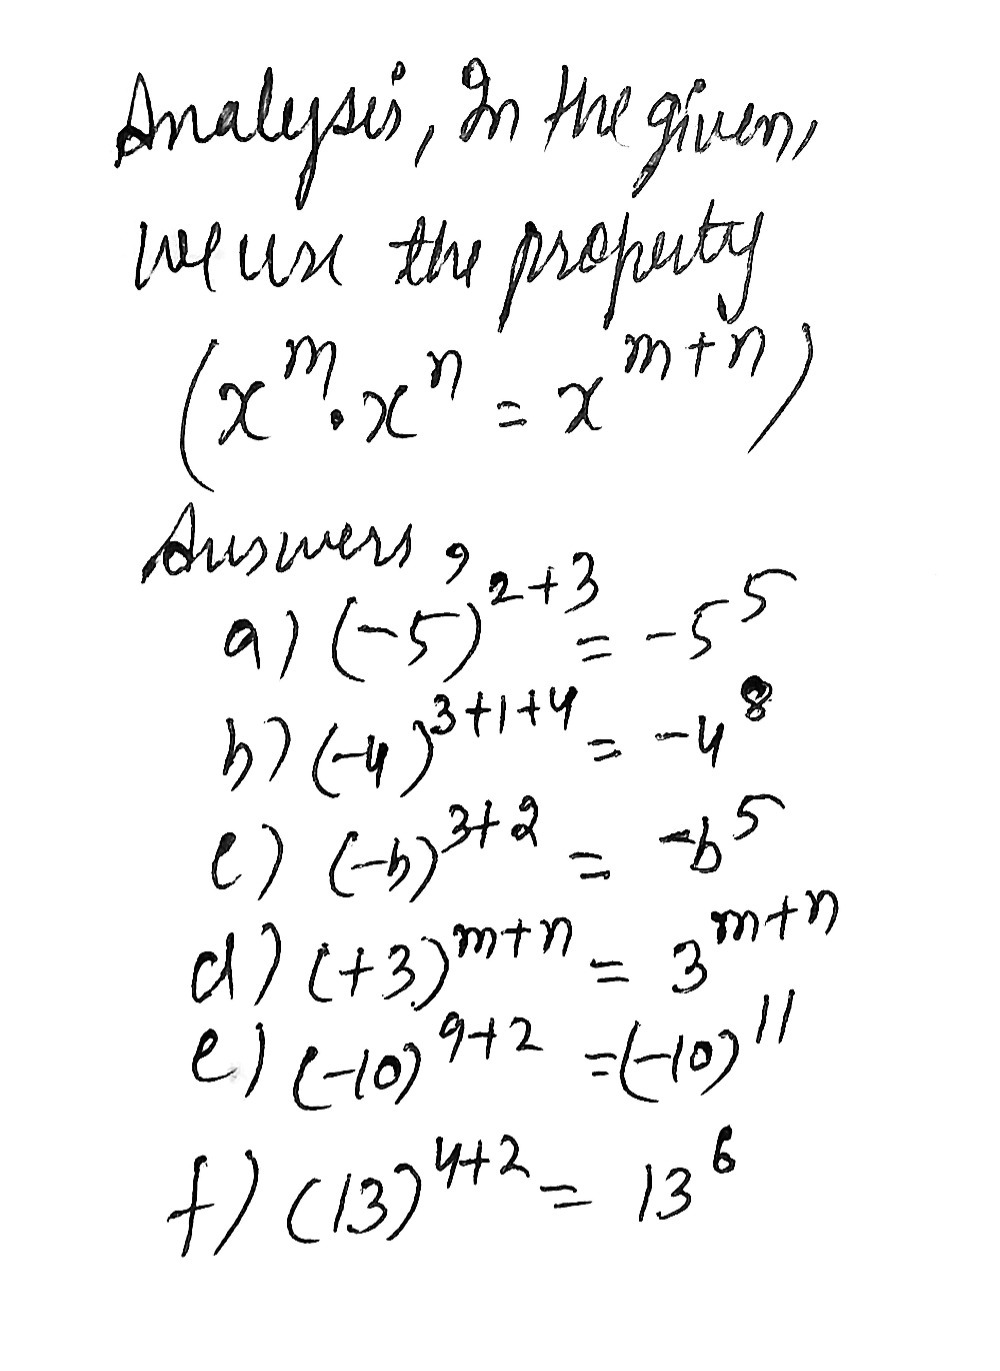 Analysis, In the given,
we use the property
(x^m · x^n = x^{m+n})
Answers,
a) (-5)^{2+3} = -5^5
b) (-4)^{3+1+4} = -4^8
c) (-b)^{3+2} = -b^5
d) (+3)^{m+n} = 3^{m+n}
e) (-10)^{9+2} = (-10)^{11}
f) (13)^{4+2} = 13^6